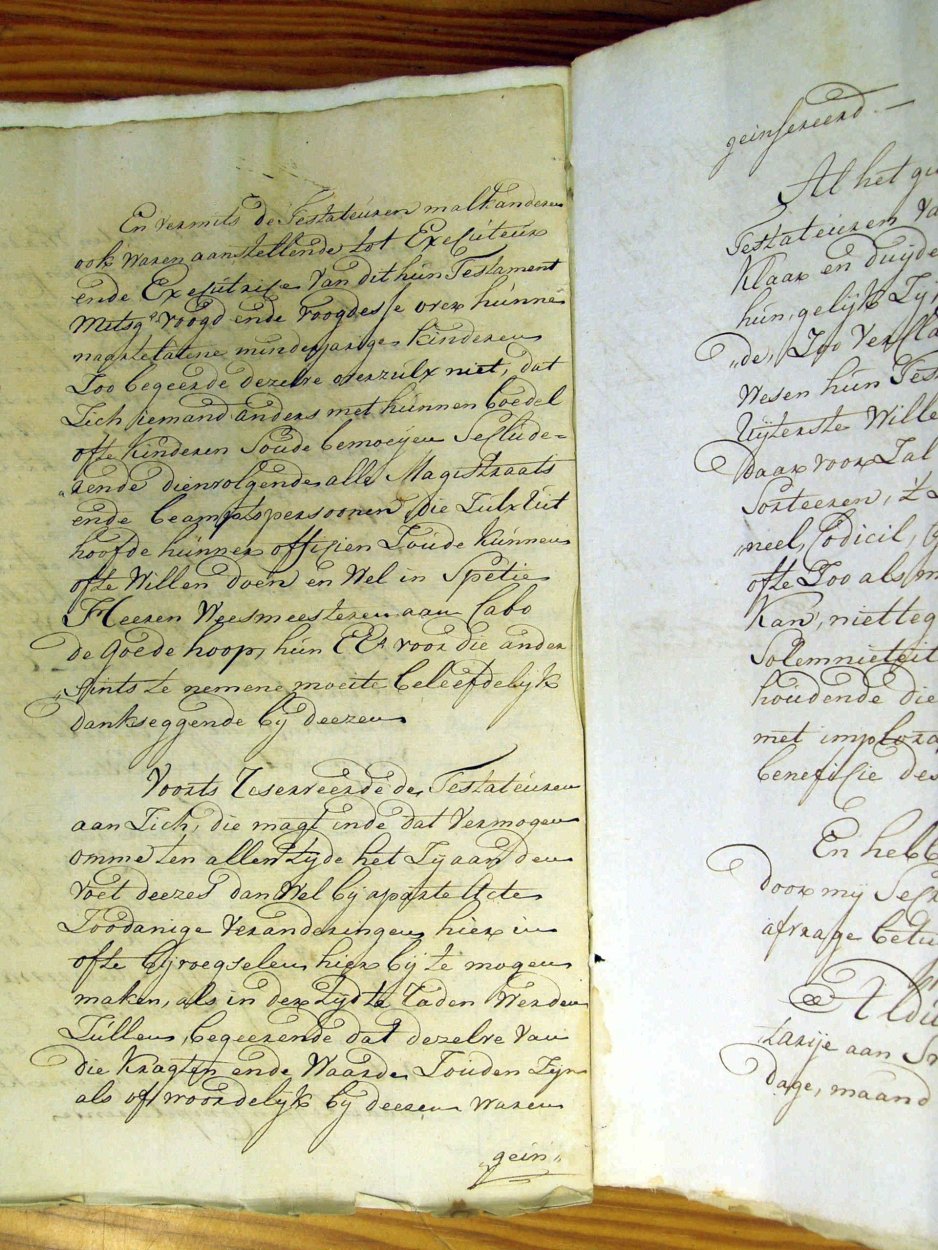 En vermits de Testateuren malkanderen
ook waren aanstellende tot Executeur
ende Executrice van dit hun Testament
Mitsgs. voogd ende voogdesse over hunne
nagelatene minderjarige kinderen
Zoo begeerde dezelve overzulx niet, dat
Zich jemand anders met hunnen boedel
ofte kinderen soude bemoeyen Seclude=
„rende dienvolgende alle Magistraats
ende beamptspersoonen die Zulx uit
hoofde hunner officien Zoude kunnen
ofte Willen doen en Wel in Spetie
Heeren Weesmeesteren aan Cabo
de Goede hoop, hun EE: voor die ander
„sints te nemene moeite beleefdelijk
dankseggende bij deezen
Voorts reserveerde de Testateuren
aan Zich, die magt inde dat Vermogen
omme ten allen tyde het Zy aan den
voet deezes dan Wel bij aparte Acte
Zoodanige Veranderingen hier in
ofte bijvoegselen hier bij te mogen
maken, als in der tijd te raden Werden
Zullen, begeerende dat dezelve Van
die Kragten ende Waarde Zouden Zijn
als of woordelijk bij deezen waren
gein„
geinsereerd.—
Al het
Testateuren
Klaar en duyde
hun, gelijk Zij
„de, Zoo Verkla
Wesen hun Tes
Uijterste Wille
daar voor Zal
Sorteeren, 't
neel, Codicil,
ofte Zoo als m
Kan, niet teg
Solemniteit
houdende die
met implora
benefitie des
En heb
door mij Secr
afvrage betu
Aldu
tarije aan
dage, maand